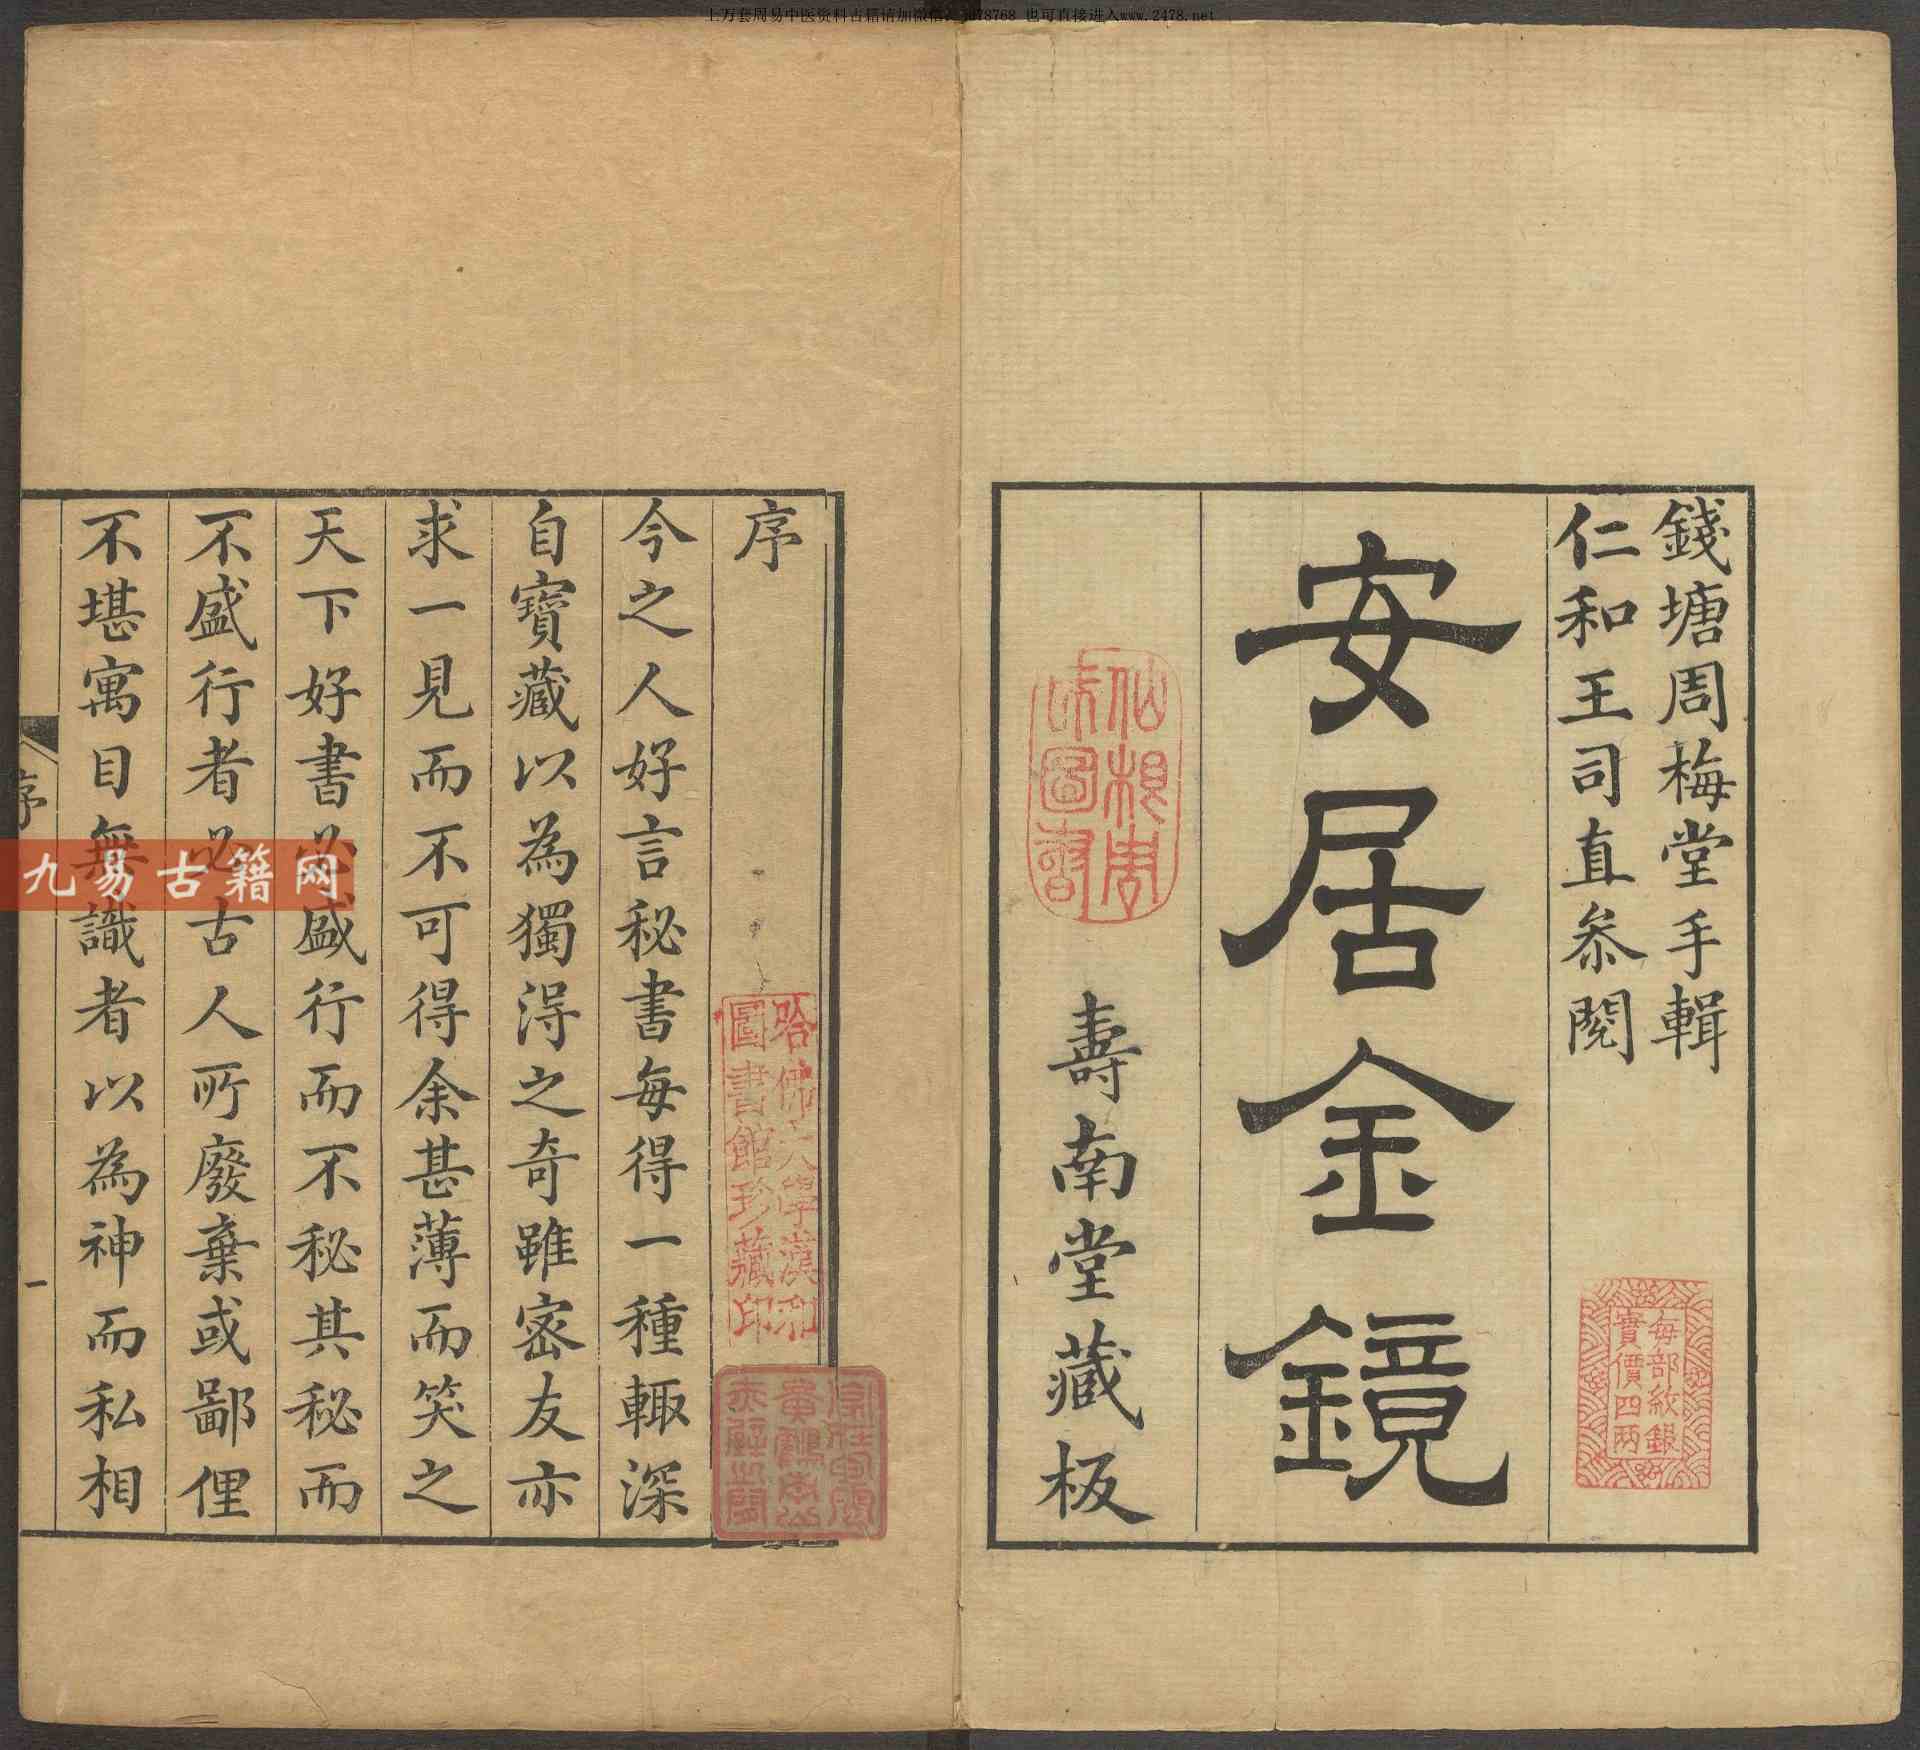 錢塘周梅堂手輯
仁和王司直叅閱
安居金鏡
壽南堂藏板
每部紋銀
實價四兩
序
今之人好言秘書每得一種輙深
自寶藏以為獨淂之奇雖密友亦
求一見而不可得余甚薄而笑之
天下好書必盛行而不秘其秘而
不盛行者必古人所廢棄或鄙俚
不堪寓目無識者以為神而私相
序
一
哈佛大學漢和
圖書館珍藏印
九易古籍网
也可直接进入www.2478.net